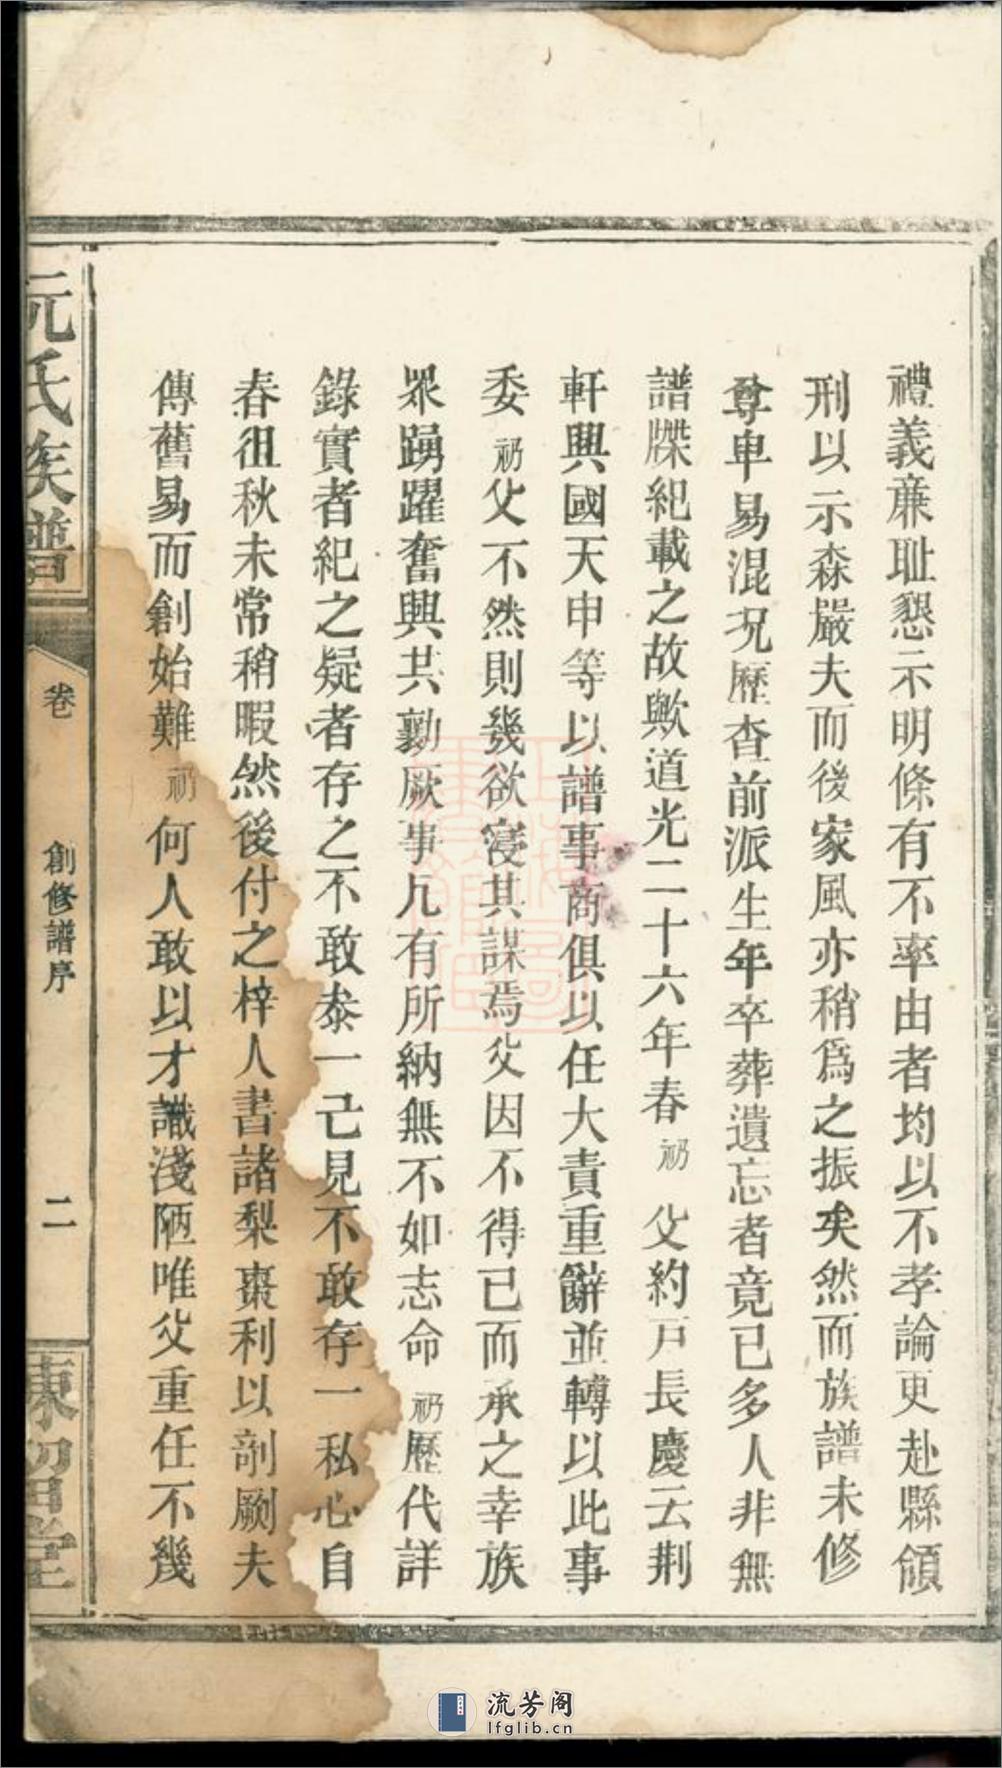 禮義亷耻懇示明條有不率由者均以不孝論更赴縣領
刑以示森嚴夫而後家風亦稍爲之振矣然而族譜未修
尊卑易混况歷查前派生年卒葬遺忘者竟已多人非無
譜牒紀載之故歟道光二十六年春礽父約戸長慶云荆
軒興國天申等以譜事商俱以任大責重辭並轉以此事
委礽父不然則幾欲寢其謀焉父因不得已而承之幸族
衆踴躍奮興共勷厥事凢有所納無不如志命礽歷代詳
錄實者紀之疑者存之不敢叅一己見不敢存一私心自
春徂秋未常稍暇然後付之梓人書諸梨棗利以剞劂夫
傳舊易而創始難礽何人敢以才識淺陋唯父重任不幾
阮氏族譜
卷
創修譜序
二
東習堂
流芳阁
lfglib.cn